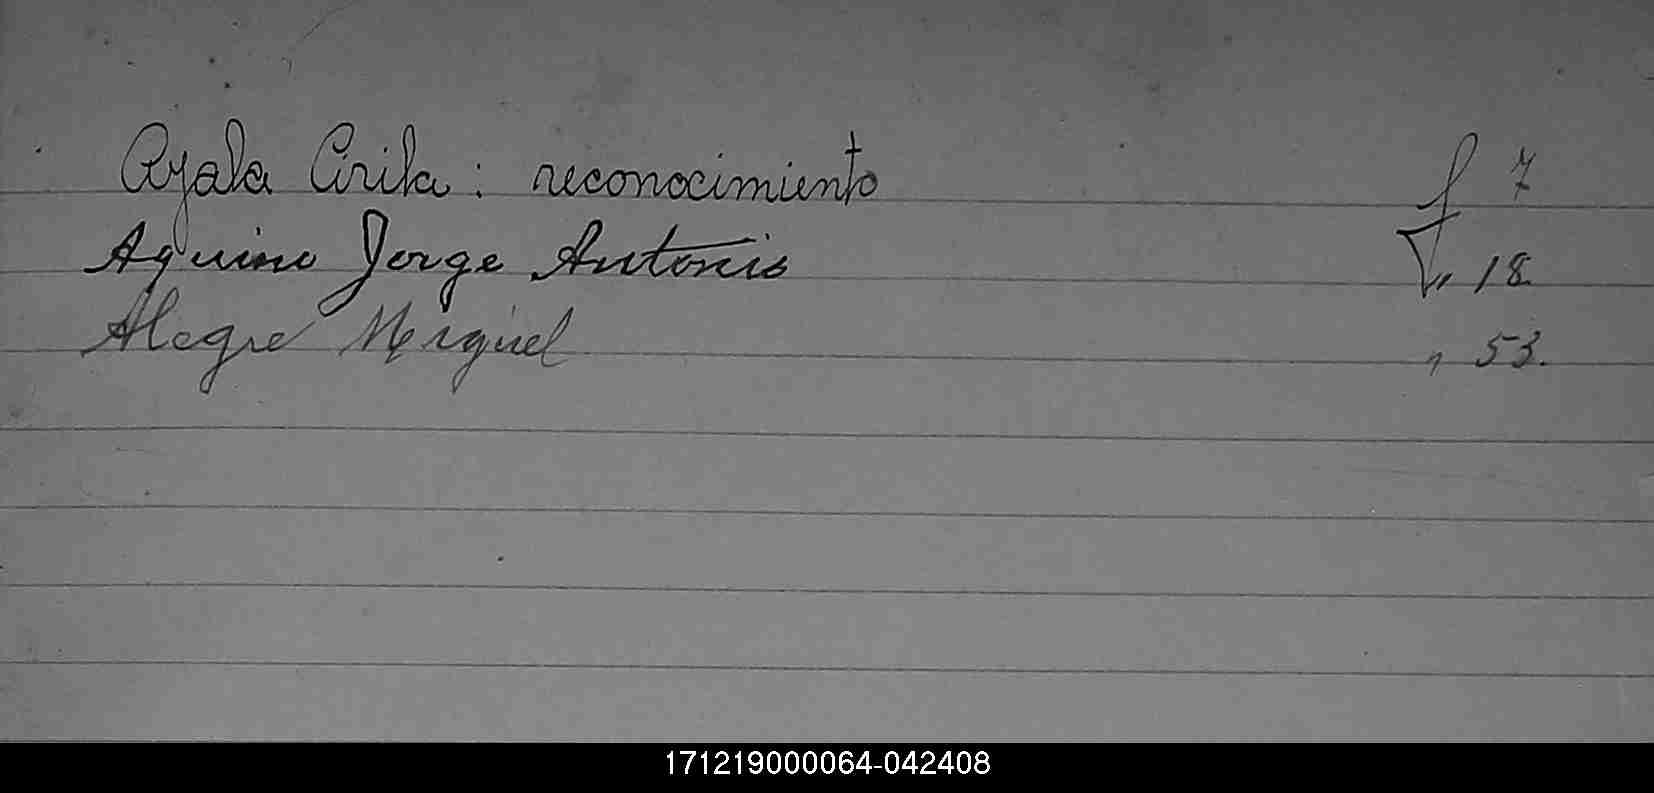 Ayala Cirila: reconocimiento f 7
Aquino Jorge Antonio " 18
Alegre Miguel " 53.
171219000064-042408